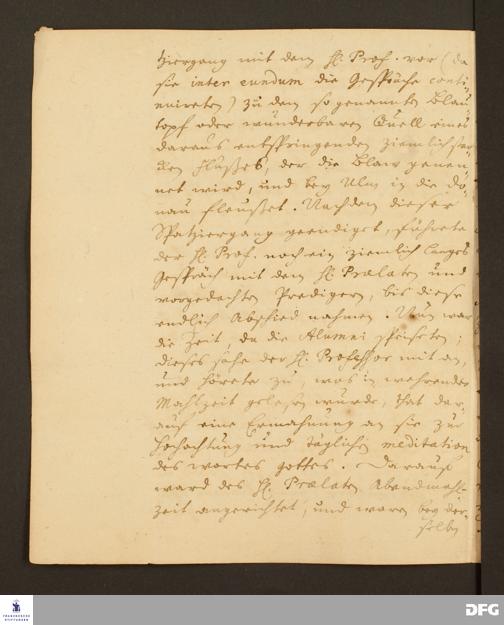 tziergang mit dem H. Prof. vor (da
sie inter eundum die Gespräche conti-
nuireten) zu dem so genannten Blau-
topf oder wunderbaren Quell eines
daraus entspringenden ziemlich star-
ken Flußes, der die Blaw genen-
net wird, und bey Ulm in die Do-
nau fleußet. Nachdem dieser
Spatziergang geendiget, führete
der H. Prof. noch ein ziemlich langes
Gespräch mit dem H. Prælaten und
vorgedachten Predigern, bis diese
endlich Abschied nahmen. Nun war
die Zeit, da die Alumni speiseten;
dieses sahe der H. Professor mit an,
und hörete zu, was in wehrender
Mahlzeit gelesen wurde, that dar-
auf eine Ermahnung an sie zur
Hochachtung und täglichen meditation
des wortes Gottes. Darauf
ward des H. Prælaten Abendmahl-
zeit angerichtet, und waren bey der-
selben
FRANCKESCHE
STIFTUNGEN
DFG